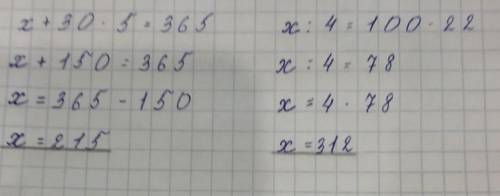 x + 30 · 5 = 365
x + 150 = 365
x = 365 - 150
x = 215
x : 4 = 100 · 22
x : 4 = 78
x = 4 · 78
x = 312